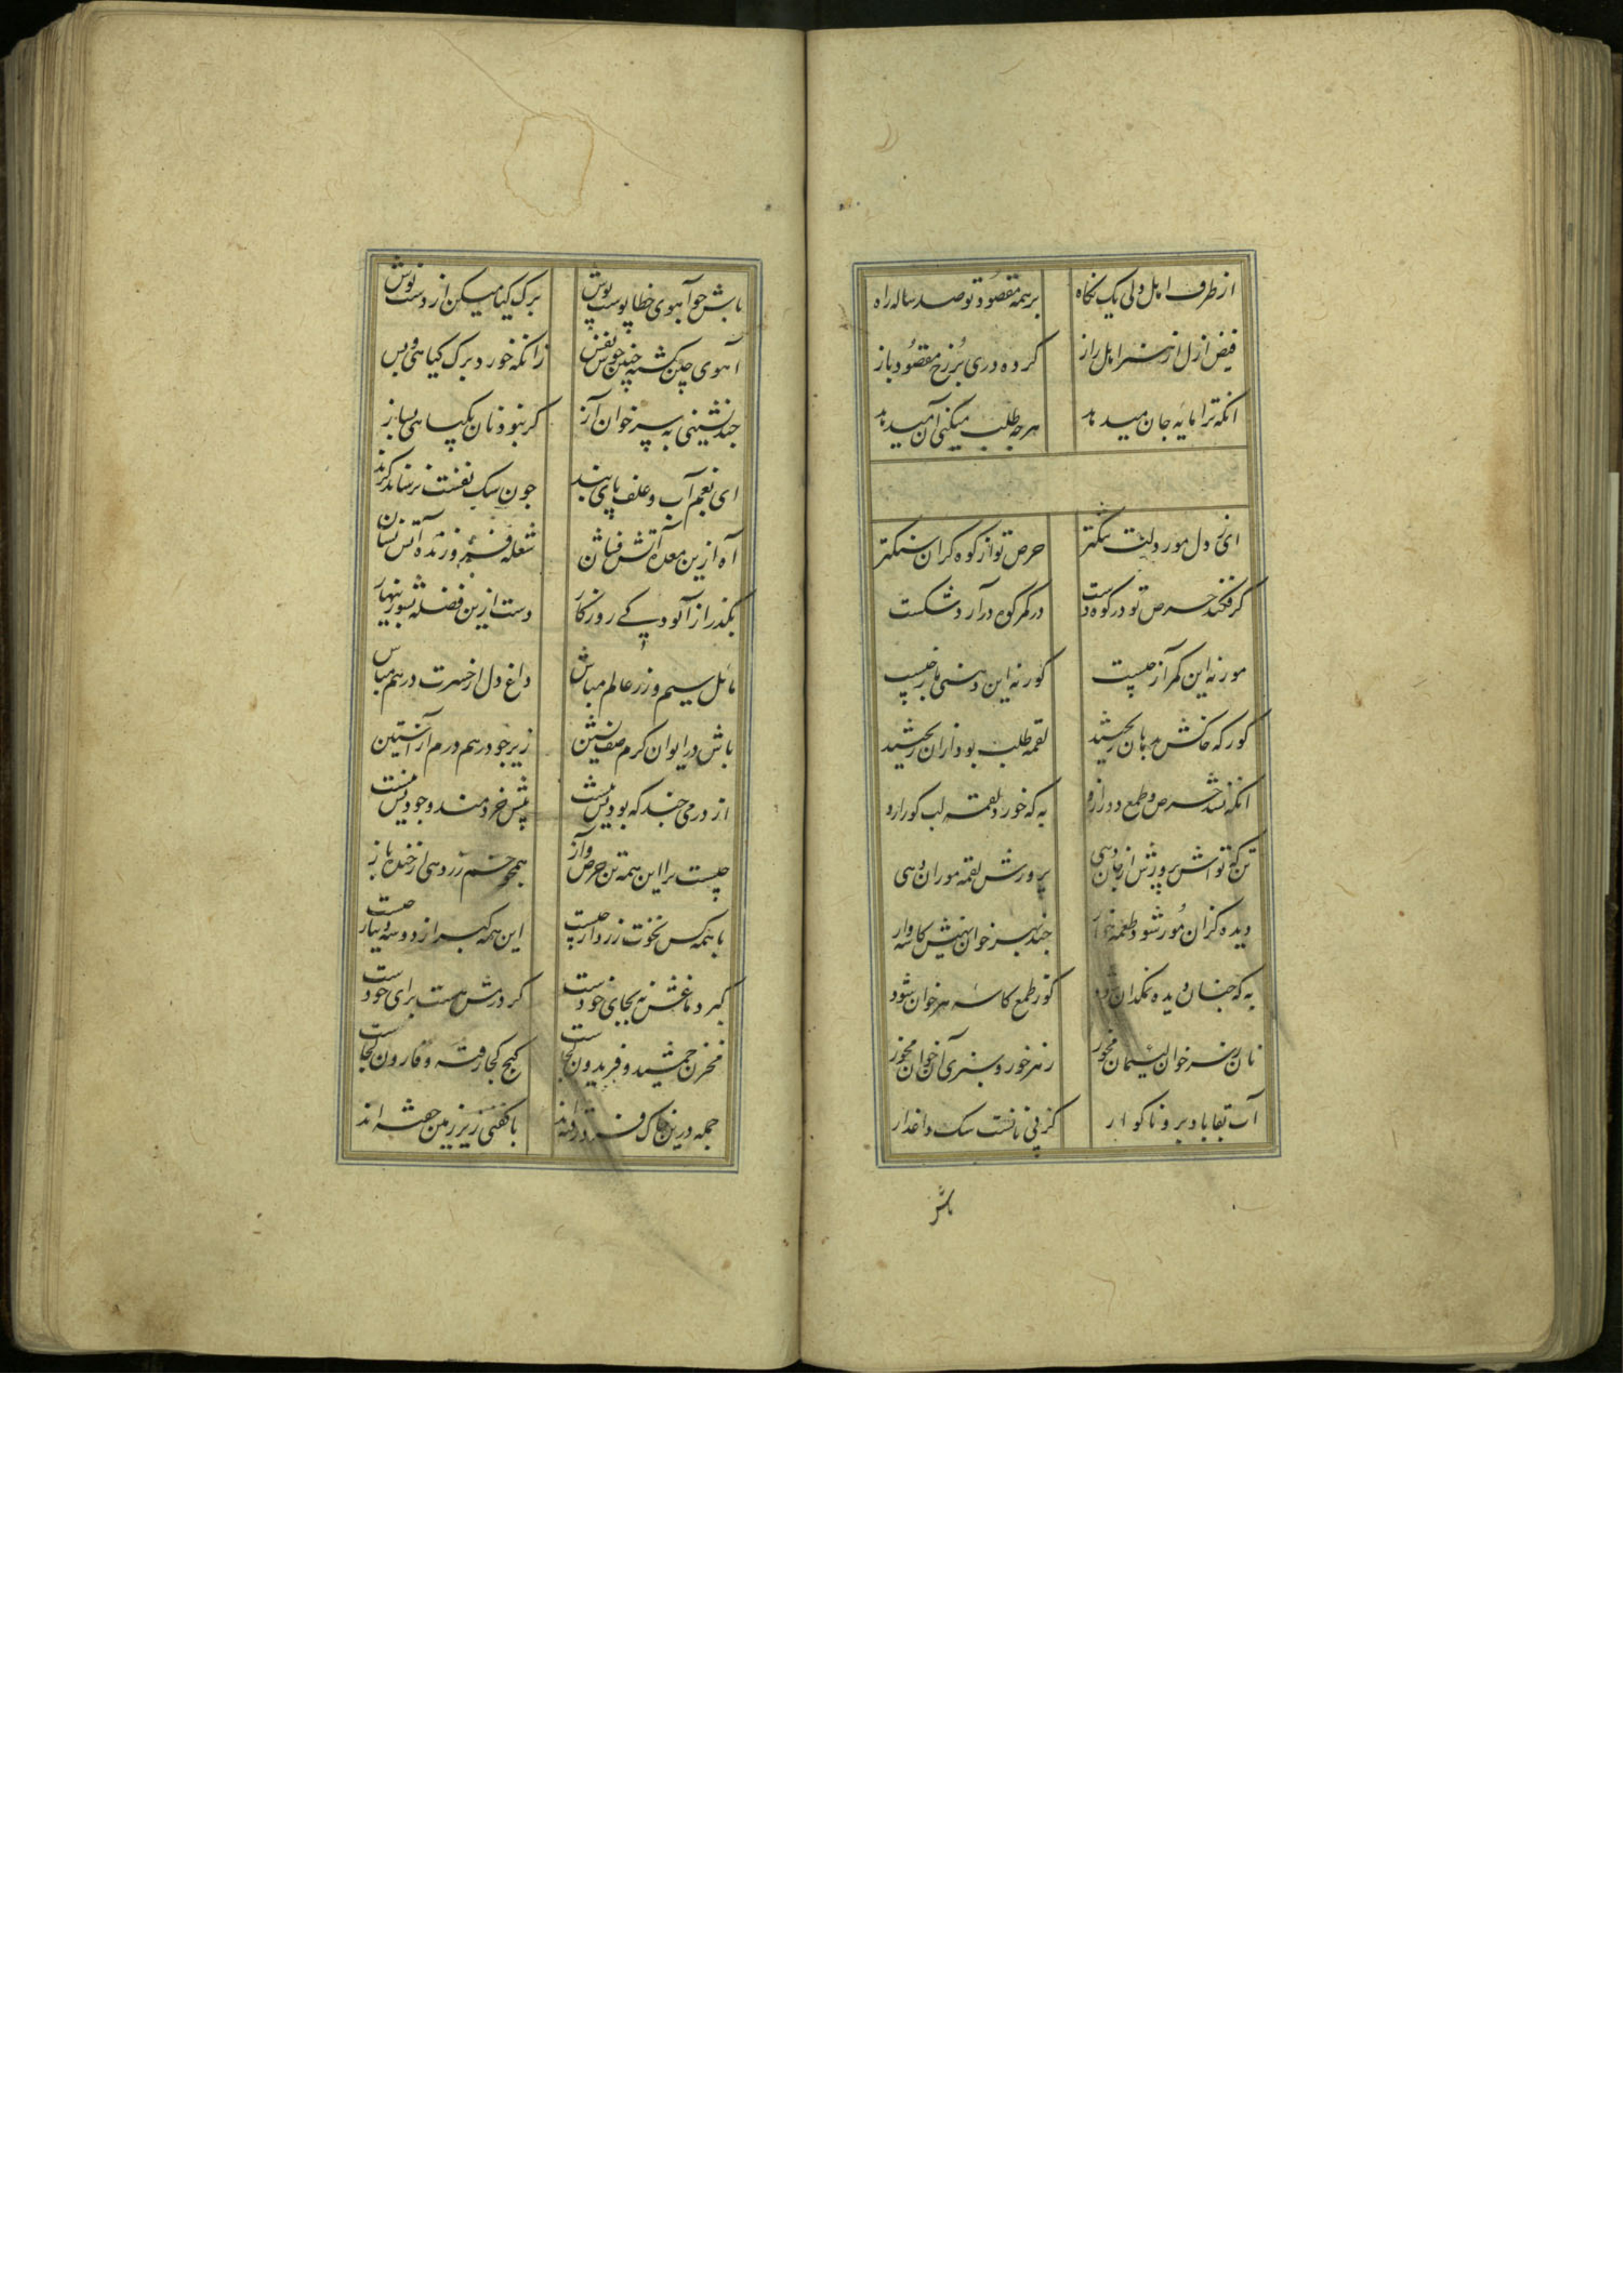 از طرف اهل دلی یک نگاه بر همه مقصود تو صد ساله راه
فیض ازل از نظر اهل راز کرده دری بر رخ مقصود باز
انکه ترا مایه جان میدهد هرچه طلب میکنی آن میدهد
ای دل مور دلت تنکتر حرص تو از کوه کران سنکتر
گر فکند حرص تو در کوه دست در کمر کوه در آرد شکست
مور نه این کمر آز چیست کور نه این دهنی باز چیست
کور که خاکش بدهان ریختند لقمه طلب بود از ان ریختند
انکه شد حرص و طمع دور ازو به که خورد لقمه لب کور ازو
تن که تو اش پرورش از جان دهی پرورش لقمه موران دهی
دیده کز ان مور شود طعمه خوار چند بهر خوان نهیش کاسه وار
به که چنان دیده نمکدان شود کز طمع کاسه هر خوان شود
نان ز سر خوان لئیمان مخور زهر خور و بنری آن خوان مخور
آب بقا باد برو ناکوار کز پی نانست سک داغدار
باش
باش چو آهوی خطا پوست پوش برک کیا میکن از دست نوش
آهوی چین کشته چنین خوش نفس زانکه خورد برک کیاهی و بس
چند نشینی به سر خوان آز کر نبود نان بکیاهی بساز
ای نعم آب و علف پای بند چون سک نفست نرساند کزند
آه ازین معده آتش فشان شعله فروزنده آتش نشان
بگذر از آلودکی روزکار دست ازین فضله بشو زینهار
مائل سیم و زر عالم مباش داغ دل از حسرت درهم مباش
باش در ایوان کرم صف نشین زیر چو درهم درم از آستین
از درمی چند که بودیش نیست پیش خردمند وجودیش نیست
چیست برا این همه تن حرص و آز همچو زر دهی از خنده باز
با همه کس نخوت زردار چیست این همه کبر از دو سه دینار چیست
کبر دماغش نه بجای خودست کر درمش هست برای خودست
مخزن جمشید و فریدون کجاست کنج کجا رفته و قارون کجاست
جمله درین خاک فرو رفته‌اند با کفنی زیر زمین خفته‌اند